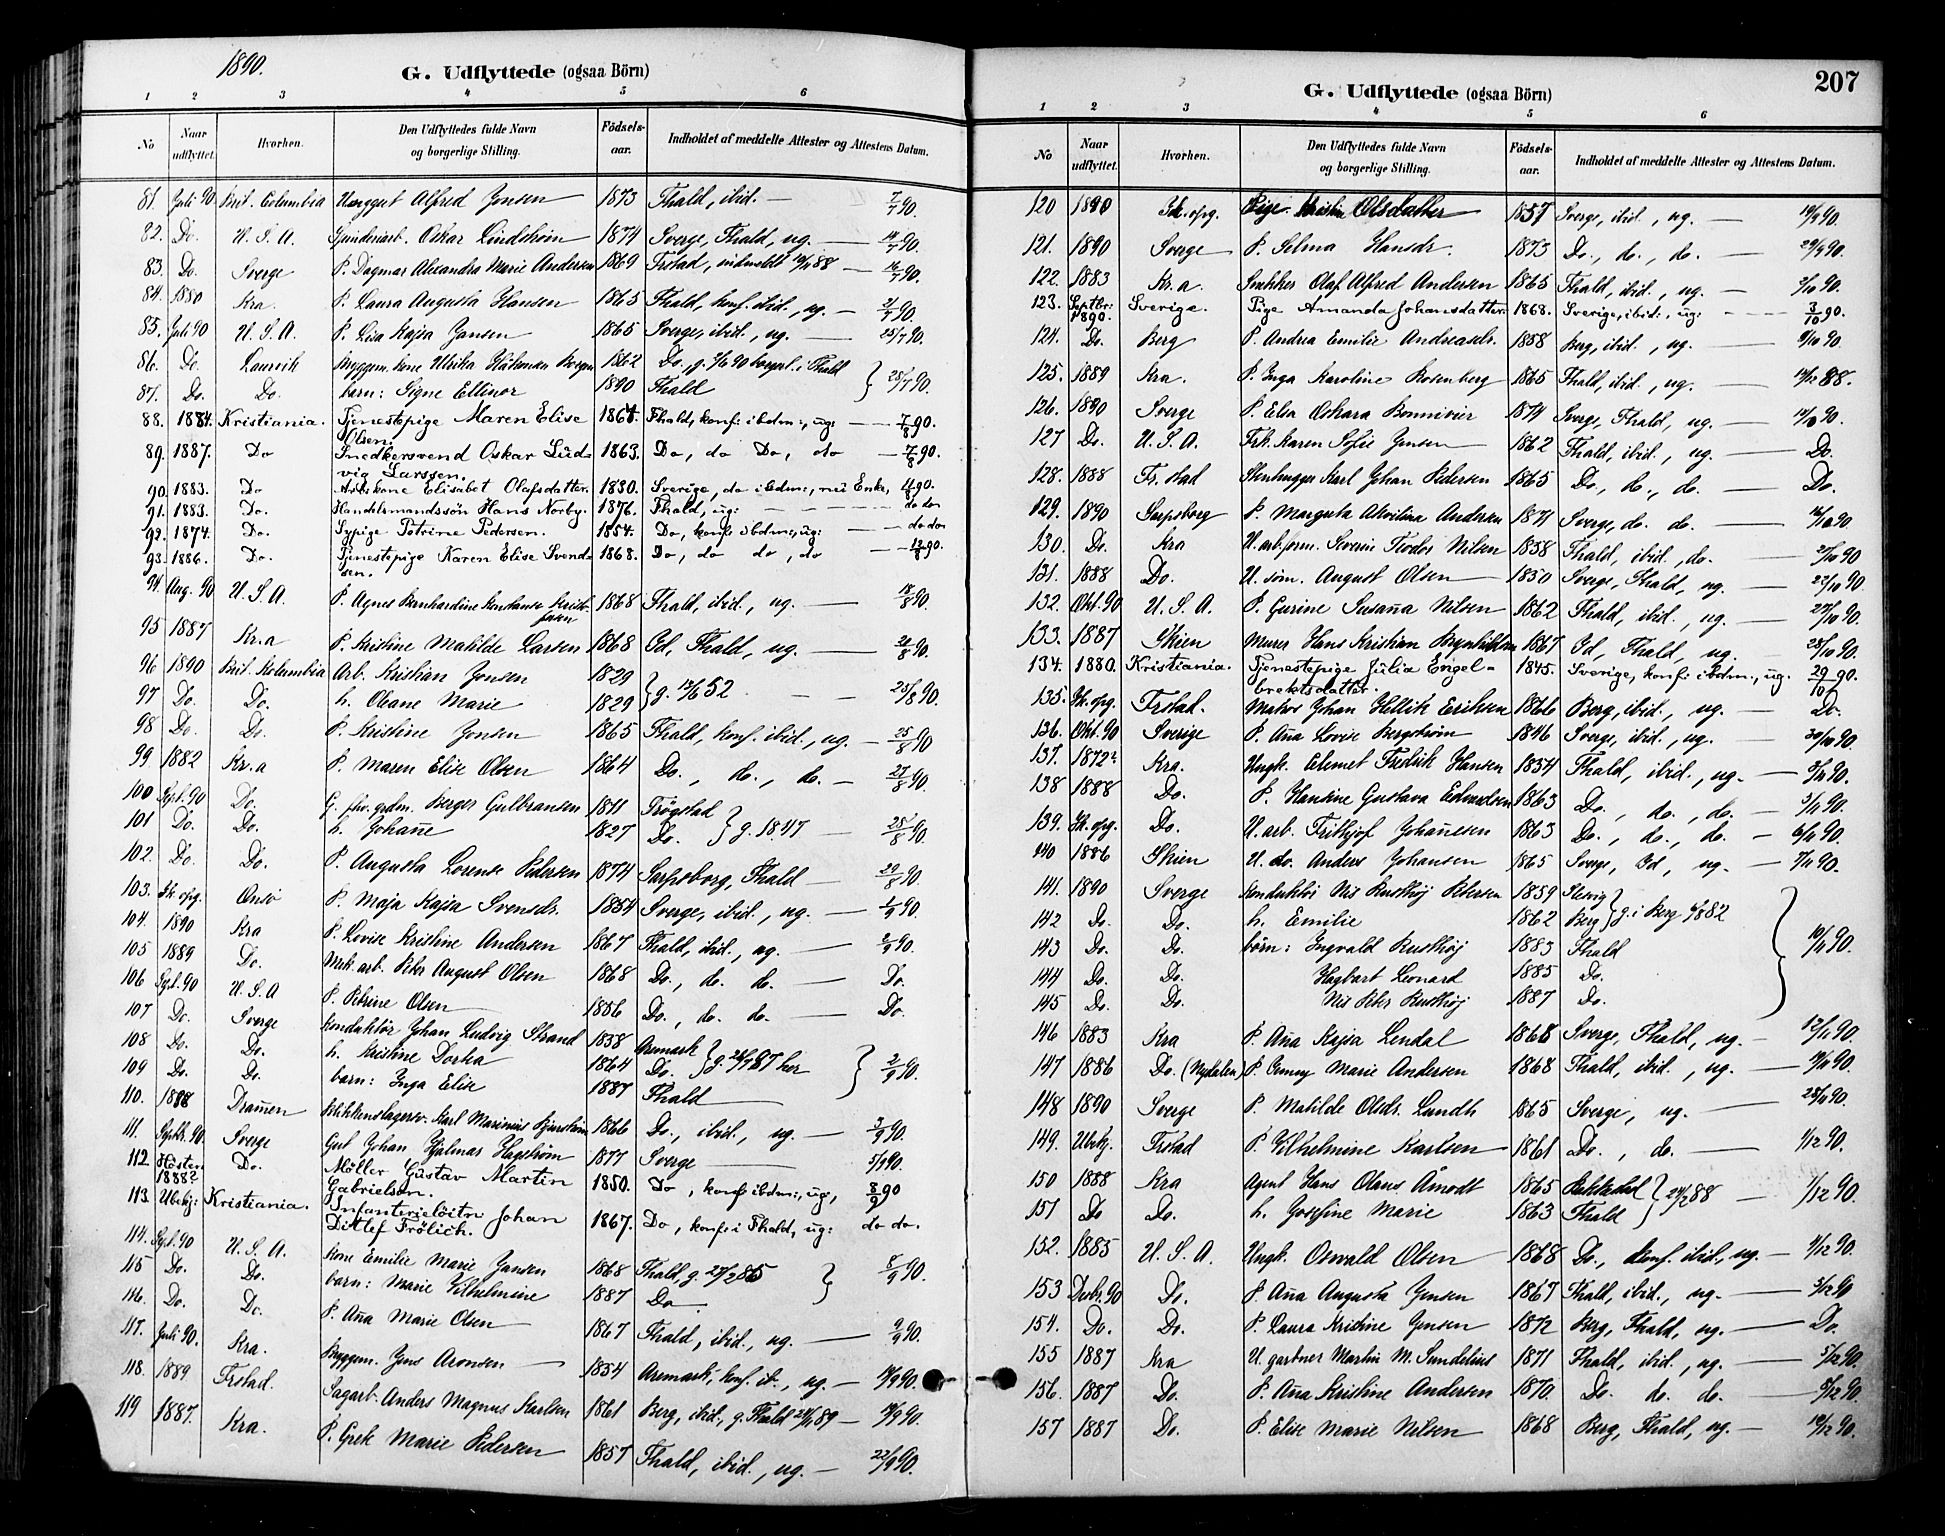 1890.
G. Udflyttede (ogsaa Börn)
1 2 3 4 5 6
No Naar udflyttet. Hvorhen. Den Udflyttedes fulde Navn og borgerlige Stilling. Födsels-aar. Indholdet af meddelte Attester og Attestens Datum.
81. Juli 90 Brit. Columbia Unggut Alfred Jensen 1873 Fhald, ibid. — 7/7 90.
82. Do. U. S. A. Oskar Lindstrøm 1874 Sverge, Fhald, ug. — 14/7 90.
83. Do. Sverge P. Dagmar Alexandra Marie Andersen 1869 Frstad, indmeldt 88 — 16/7 90.
84. 1880 Kra. P. Laura Augusta Hansen 1865 Fhald, konf. ibid., ug. — 21/7 90.
85. Juli 90 U. S. A. P. Lisa Kajsa Jansen 1865 Sverge, ibid., ug. — 25/7 90.
86. Do. Laurvik Bryggem. kone Ulrika 1862 Do, g. 90 borgerl. i Fhald
87. Do. Do. barn: Signe Ellinor 1890 Fhald } 28/7 90.
88. 1884. Kristiania. Tjenestepige Maren Elise Olsen. 1864. Fhald, konf: ibdm:, ug: — 7/8 90.
89. 1887. Do Snedkersvend Oskar Ludvig Larssen. 1863. Do, do Do, do — 7/8 90.
90. 1883. Do Arbskone Elisabet Olafsdatter. 1830. Sverige, do ibdm:, nú Enke,
91. 1883. Do. Handelsmandssön Hans Norby. 1876. Fhald, ug: — do do
92. 1874. Do. Sypige Petrine Pedersen. 1854. Do, konf: ibdm:, ug: — do do
93. 1886. Do. Tjenestepige Karen Elise Svendsen. 1868. Do, do do, do — 12/8 90.
94. Aug. 90 U. S. A. P. Agnes Bernhardine 1868 Fhald, ibid., ug. — 18/8 90.
95 1887 Kr.a P. Kristine Matilde Larsen 1868 Id, Fhald, ug. — 21/8 90.
96 1890 Brit. Kolumbia Arb. Kristian Jensen 1829
97 Do. Do. h. Oleane Marie 1829 } g. 52 — 25/8 90.
98 Do. Do. P. Kristine Jensen 1865 Fhald, konf. ibid., ug. — 25/8 90
99 1882 Kr.a P. Maren Elise Olsen 1864 Do., do., do. — 27/8 90.
100 Spt. 90 Do. Berger Gulbransen 1811 Trøgstad
101 Do. Do. h. Johanne 1827 Do. } g. 1847 — 28/8 90.
102. Do. Do. P. Augusta Lorense Pedersen 1874 Sarpsborg, Fhald — 29/8 90.
103. Onsø P. Maja Kajsa Svensdr. 1854 Sverge, ibid., ug. — 1/9 90.
104. 1890 Kra P. Lovise Kristine Andersen 1867 Fhald, ibid., ug. — 2/9 90.
105 1889 Do. Mek. arb. Peter August Olsen 1868 Do., do. do. — Do.
106 Spt. 90 U. S. A P. Petrine Olsen 1856 Do., do. do. — Do.
107 Do. Sverge Konduktør Johan Ludvig Strand 1858 Aremark
108 Do. Do. h. Kristine Dorthea 1864 Do. } g. 87 her
109 Do. Do. barn: Inga Elise 1887 Fhald } 2/9 90.
110. 1888 Dramen Karl Marinius 1866 Do., ibid., ug. — 3/9 90.
111. Septbr. 90 Sverge Gut Johan Hjalmar Hagstrøm 1877 Sverge — 5/9 90.
112 Høsten 1888? Do. Möller Gústav Martin Gabrielsen. 1850. Do, konf: ibdm:, ug, 8/9 90
113. Ubekj: Kristiania. Infanterielöitn Johan Ditlef Frölich. 1867. Do, konf: i Fhald, ug: do do.
114. Spt. 90 U. S. A. Kone Emilie Marie Jansen 1868 Fhald, g. 85
115 Do. Do. barn: Marie Vilhelmine 1887 Do. } 8/9 90.
116. Do. Do. P. Aña Marie Olsen 1867 Fhald, ibid., ug. — 9/9 90.
117. Juli 90. Kra. Byggem. Jens Aronsen 1854 Aremark, konf. ib., ug. — 90.
118. 1889 Frstad. Sagarb. Anders Magnus Karlsen 1861 Berg, ibid., g. Fhald 89 — 90.
119 1887. Kra. P. Grete Marie Pedersen 1857 Fhald, ibid., ug. — 22/9 90.
207
G. Udflyttede (ogsaa Börn)
1 2 3 4 5 6
No Naar udflyttet. Hvorhen. Den Udflyttedes fulde Navn og borgerlige Stilling. Födsels-aar. Indholdet af meddelte Attester og Attestens Datum.
120 1890 Pige Kristin Olsdatter 1857 Sverge, ibid., ug. — 90.
121. 1890 Sverge P. Selma Hansdr. 1873 Do., do., do. — 29/9 90.
122. 1883 Kr.a. Snekker Olaf Alfred Andersen 1865 Fhald, ibid., ug. — 90.
123. Septbr: 1890. Sverige. Pige Amanda Johansdatter. 1868. Sverige, ibid:, ug: — 3/10 90.
124. Do. Berg P. Andrea Emilie Andreasdr. 1858 Berg, ibid., ug. — 90.
125. 1889 Kra. P. Inga Karoline Rosenberg 1865 Fhald, ibid., ug. — 88.
126. 1890 Sverge P. Elsa Oskara Bonnivier 1874 Sverge, Fhald, ug. — 90.
127 Do. U. S. A. Frk. Karen Sofie Jensen 1862 Fhald, ibid., ug. — Do.
128. 1888 Fr. stad Stenhugger Karl Johan Pedersen 1865 Do., do., do. — Do.
129. 1890 Sarpsborg P. Margreta Andersen 1871 Sverge, do. do. — 90
130. Do. Kra Severin Teodor Nilsen 1858 Fhald, ibid., do. — 90
131. 1888 Do. U. søm. August Olsen 1850 Sverge, Fhald, ug. — 22/10 90.
132. Okt. 90 U. S. A. P. Gurine Susaña Nilsen 1862 Fhald, ibid., ug. — 27/10 90.
133. 1887 Skien Murer Hans Kristian 1867 Id, Fhald, ug. — 28/10 90.
134. 1880. Kristiania. Tjenestepige Júlia Engelbrektsdatter. 1845. Sverige, konf: ibdm:, ug. 29/10 90.
135. Frstad. Matros Johan Eriksen 1866 Berg, ibid., ug. — Do.
136. Okt. 90 Sverige P. Aña Lovise Bergstrøm 1846 Sverge, ibid., ug. — 30/10 90.
137. 1872? Kra. Ungk. Clemet Fredrik Hansen 1854 Fhald, ibid., ug. — 90.
138 1888 Do. P. Hantine Gustava Edvardsen 1863 Do., do., do. — 5/11 90.
139. Do. U. arb. Frithjof Johañesen 1863 Do., do., do. — 6/11 90.
140 1886 Skien U. do. Anders Johansen 1865 Sverge, Id, ug. — 7/11 90.
141. 1890 Sverge Konduktør Nis Petersen 1859 Slesvig
142 Do. Do. h. Emilie 1862 Berg } g. i Berg 82
143 Do. Do. børn: Ingvald 1883 Fhald } 10/11 90.
144 Do. Do. Hagbart Leonard 1885 Do.
145 Do. Do. Nis Peter 1887 Do.
146 1883 Kra P. Aña Kajsa Lendal 1868 Sverge, Fhald, ug. — 12/11 90.
147 1886 Do. (Nydalen) P. Marie Andersen 1868 Fhald, ibid., ug. — 90.
148 1890 Sverge P. Matilde Olsdr. Lundh 1865 Sverge, ug. — 28/11 90.
149. Ubekj. Frstad P. Vilhelmine Karlsen 1861 Do., do. — 1/12 90.
150 1888 Kra Agent Hans Olaus Amodt 1865 Rakkestad
151 Do Do. h. Josefine Marie 1863 Fhald } 88 — 1/12 90.
152. 1885 U. S. A. Ungk. Osvald Olsen 1868 Do., konf. ibid., ug. — 90.
153 Desbr. 90 Do. P. Aña Augusta Jensen 1867 Fhald, ibid., ug. — 90
154. Do. Do. P. Laura Kristine Jensen 1872 Berg, Fhald, ug. — Do.
155 1887 Kra U. gartner Martin M. Sundelius 1871 Fhald, ibid., ug. — 5/12 90.
156. 1887 Do. P. Aña Kristine Andersen 1870. Do. do. do. — 8/12 90.
157 1887 Do. P. Elise Marie Nilsen 1868 Berg, Fhald, ug. — 10/12 90.